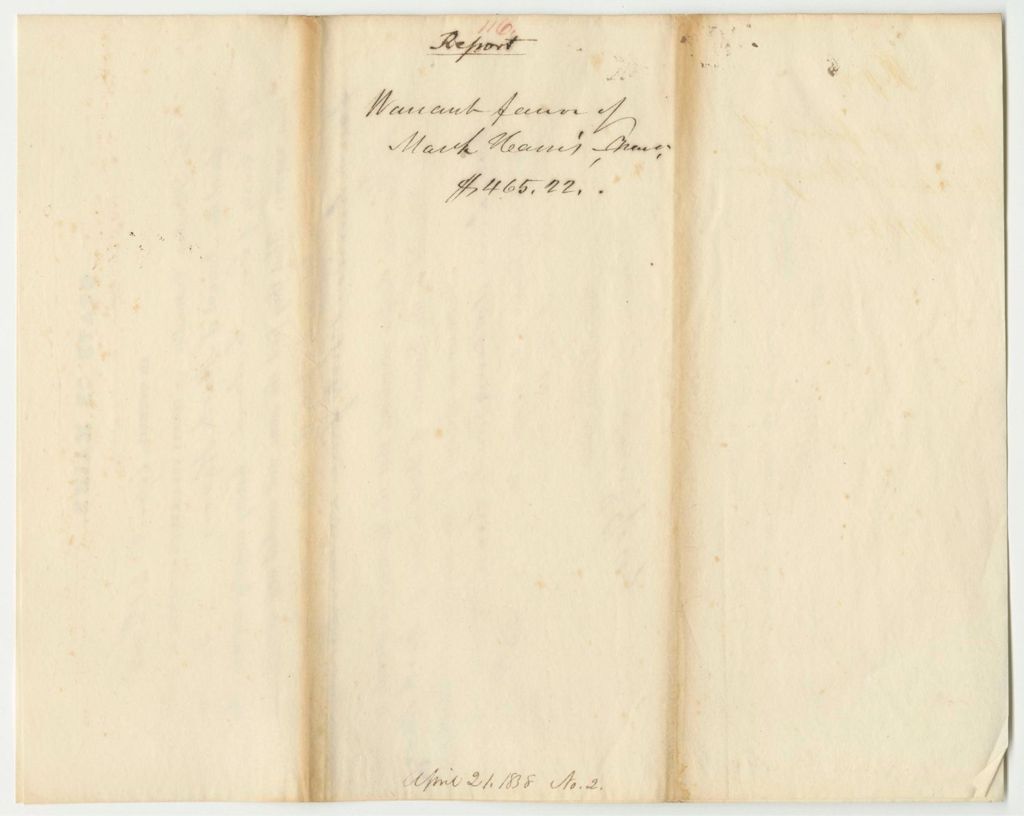 116.
Report
Warrant favor of
Mark Harris,
$465.22.
April 21. 1838 No. 2.